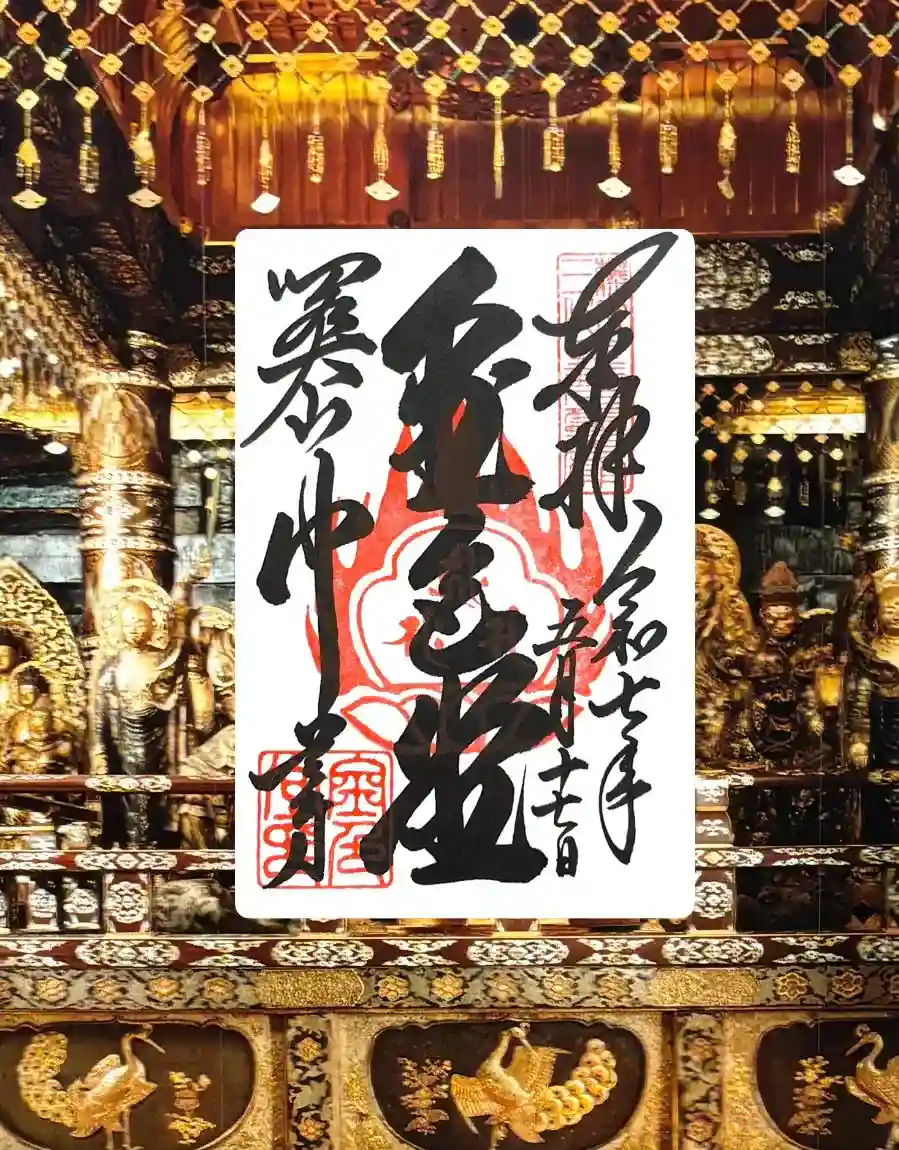 奉拝
令和七年
五月十七日
金色堂
関山
中尊寺